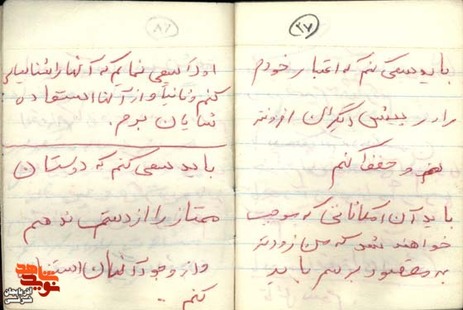 ۲۷
باید سعی کنم که اعتبار خودم
را در پیش دیگران افزونتر
و حفظ کنم
باید آن امکاناتی که موجب
خواهند شد که من زودتر
به مقصود برسم باید
۲۸
اولاً سعی نمایم که آنها را شناسایی
کنم و ثانیاً از آنها استفاده
شایان برم.
باید سعی کنم که دوستان
ممتاز را از دست ندهم
و از وجود آنان
کنم.
نوید شاهد